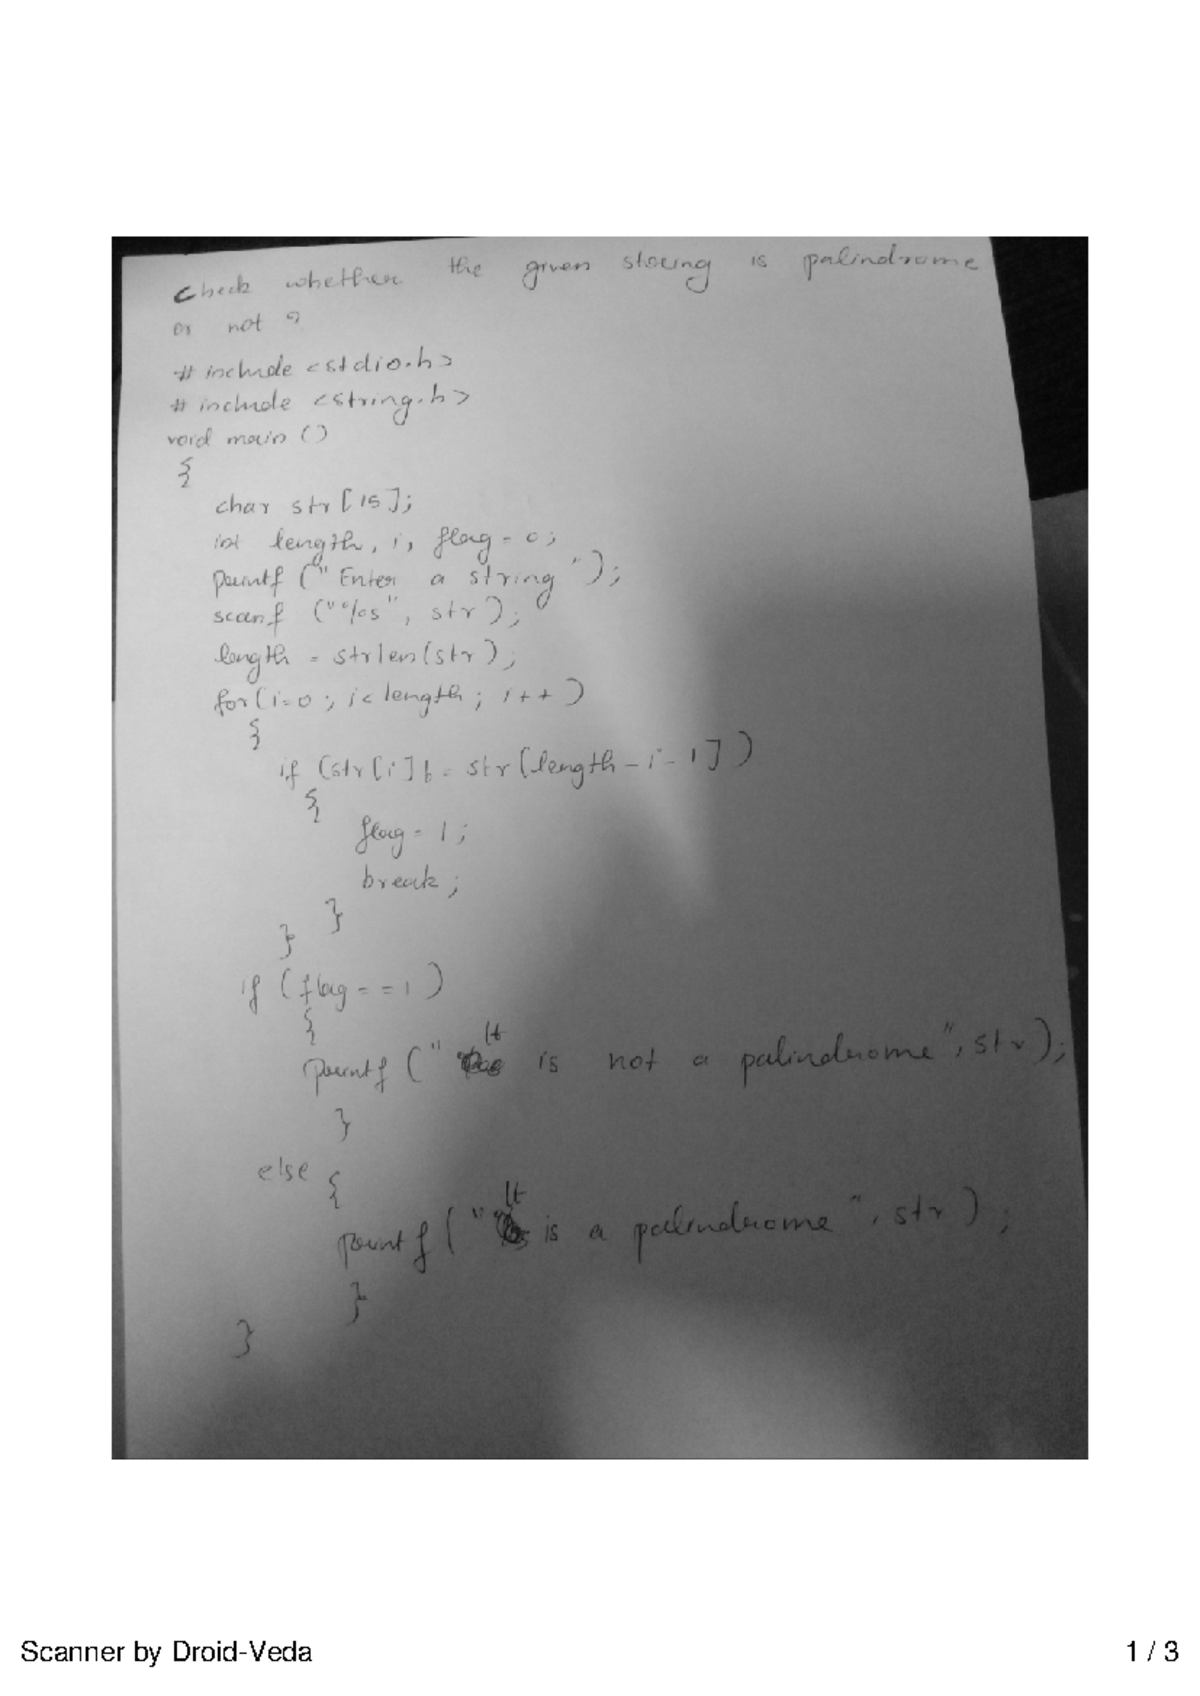 Check whether the given string is palindrome
or not ?
# include <stdio.h>
# include <string.h>
void main ()
{
char str [15];
int length, i, flag = 0;
printf ("Enter a string ");
scanf ("%s", str);
length = strlen(str);
for(i=0; i<length; i++)
{
if (str[i] != str[length-i-1])
{
flag = 1;
break;
}
}
if (flag == 1)
{
printf (" It is not a palindrome", str);
}
else {
printf (" It is a palindrome", str);
}
}
Scanner by Droid-Veda
1 / 3